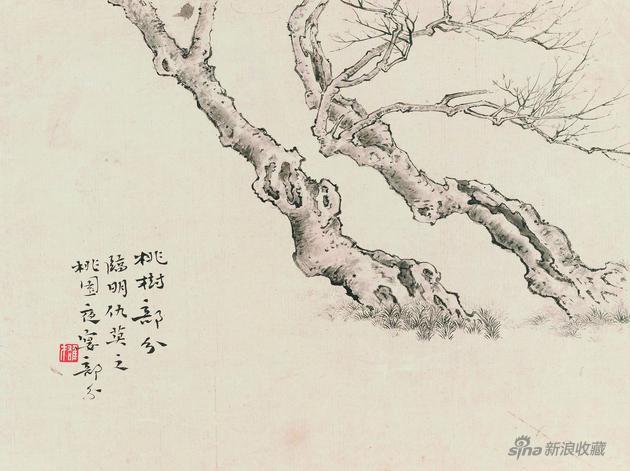 桃樹部分
臨明仇英之
桃園夜宴部分
sina 新浪收藏